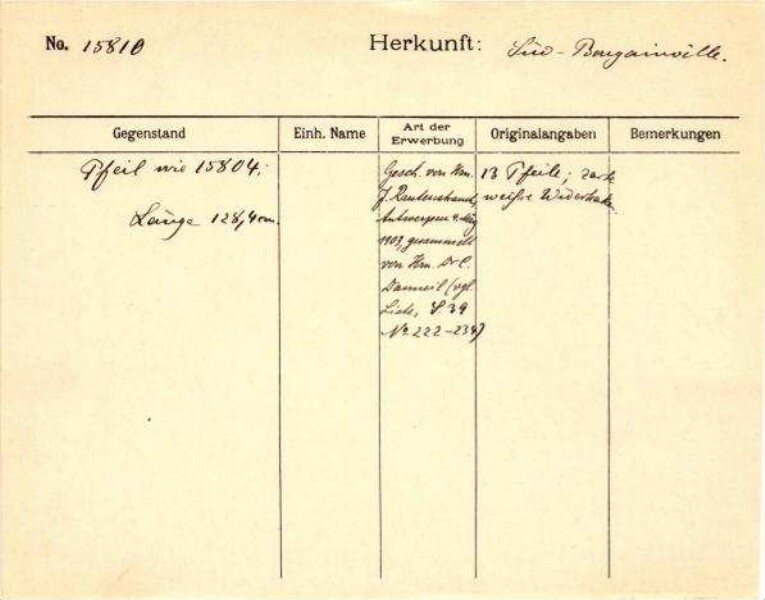 No. 15810 Herkunft: Süd-Bougainville.
Gegenstand Einh. Name Art der Erwerbung Originalangaben Bemerkungen
Pfeil wie 15804;
Länge 128,4 cm.
Gesch. von Hrn.
J. Rautenstrauch,
Antwerpen 4. März
1903, gesammelt
von Hrn. Dr C.
Danneil (vgl.
Liste, S 39
No. 222-234)
13 Pfeile;
weiße Widerhaken.